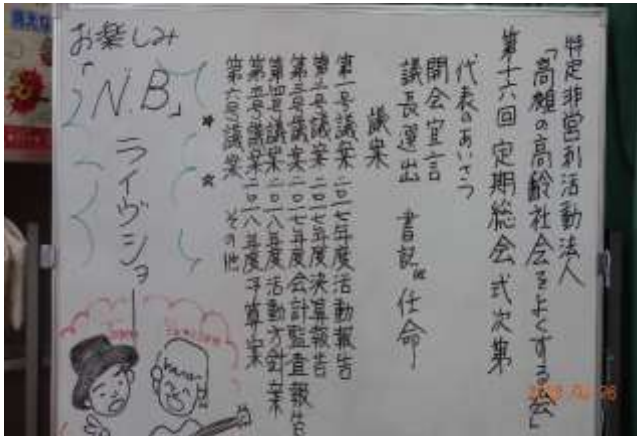 特定非営利活動法人
「高槻の高齢社会をよくする会」
第十六回 定期総会 式次第
代表のあいさつ
開会宣言
議長選出 書記の任命
議案
第一号議案 二〇一七年度活動報告
第二号議案 二〇一七年度決算報告
第三号議案 二〇一七年度会計監査報告
第四号議案 二〇一八年度活動方針案
第五号議案 二〇一八年度予算案
第六号議案 その他
お楽しみ
「N.B」
ライヴショー